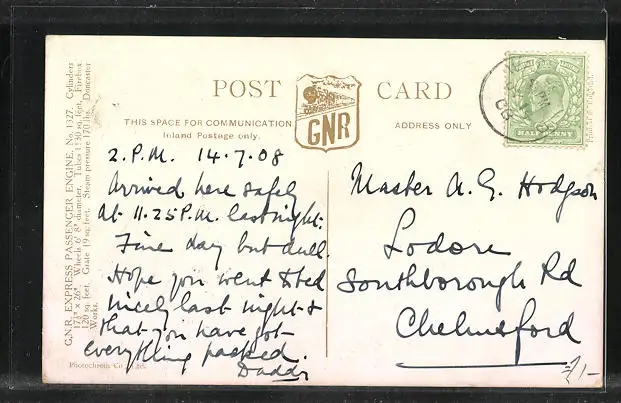 POST CARD
GNR
THIS SPACE FOR COMMUNICATION
Inland Postage only.
ADDRESS ONLY
HALFPENNY
G.N.R. EXPRESS PASSENGER ENGINE, No. 1327. Cylinders
Wheels 6' 8" diameter. Firebox
120 sq. feet. Steam pressure 170 lbs. Doncaster
Works.
2.P.M. 14.7.08
Arrived here safely
at 11.25 P.M. last night.
Fine day but dull.
Hope you went to bed
nicely last night &
that you have got
everything packed.
Daddy
Master A. G. Hodgson
Lodore
Southborough Rd
Chelmsford
Photochrom Co., Ltd.